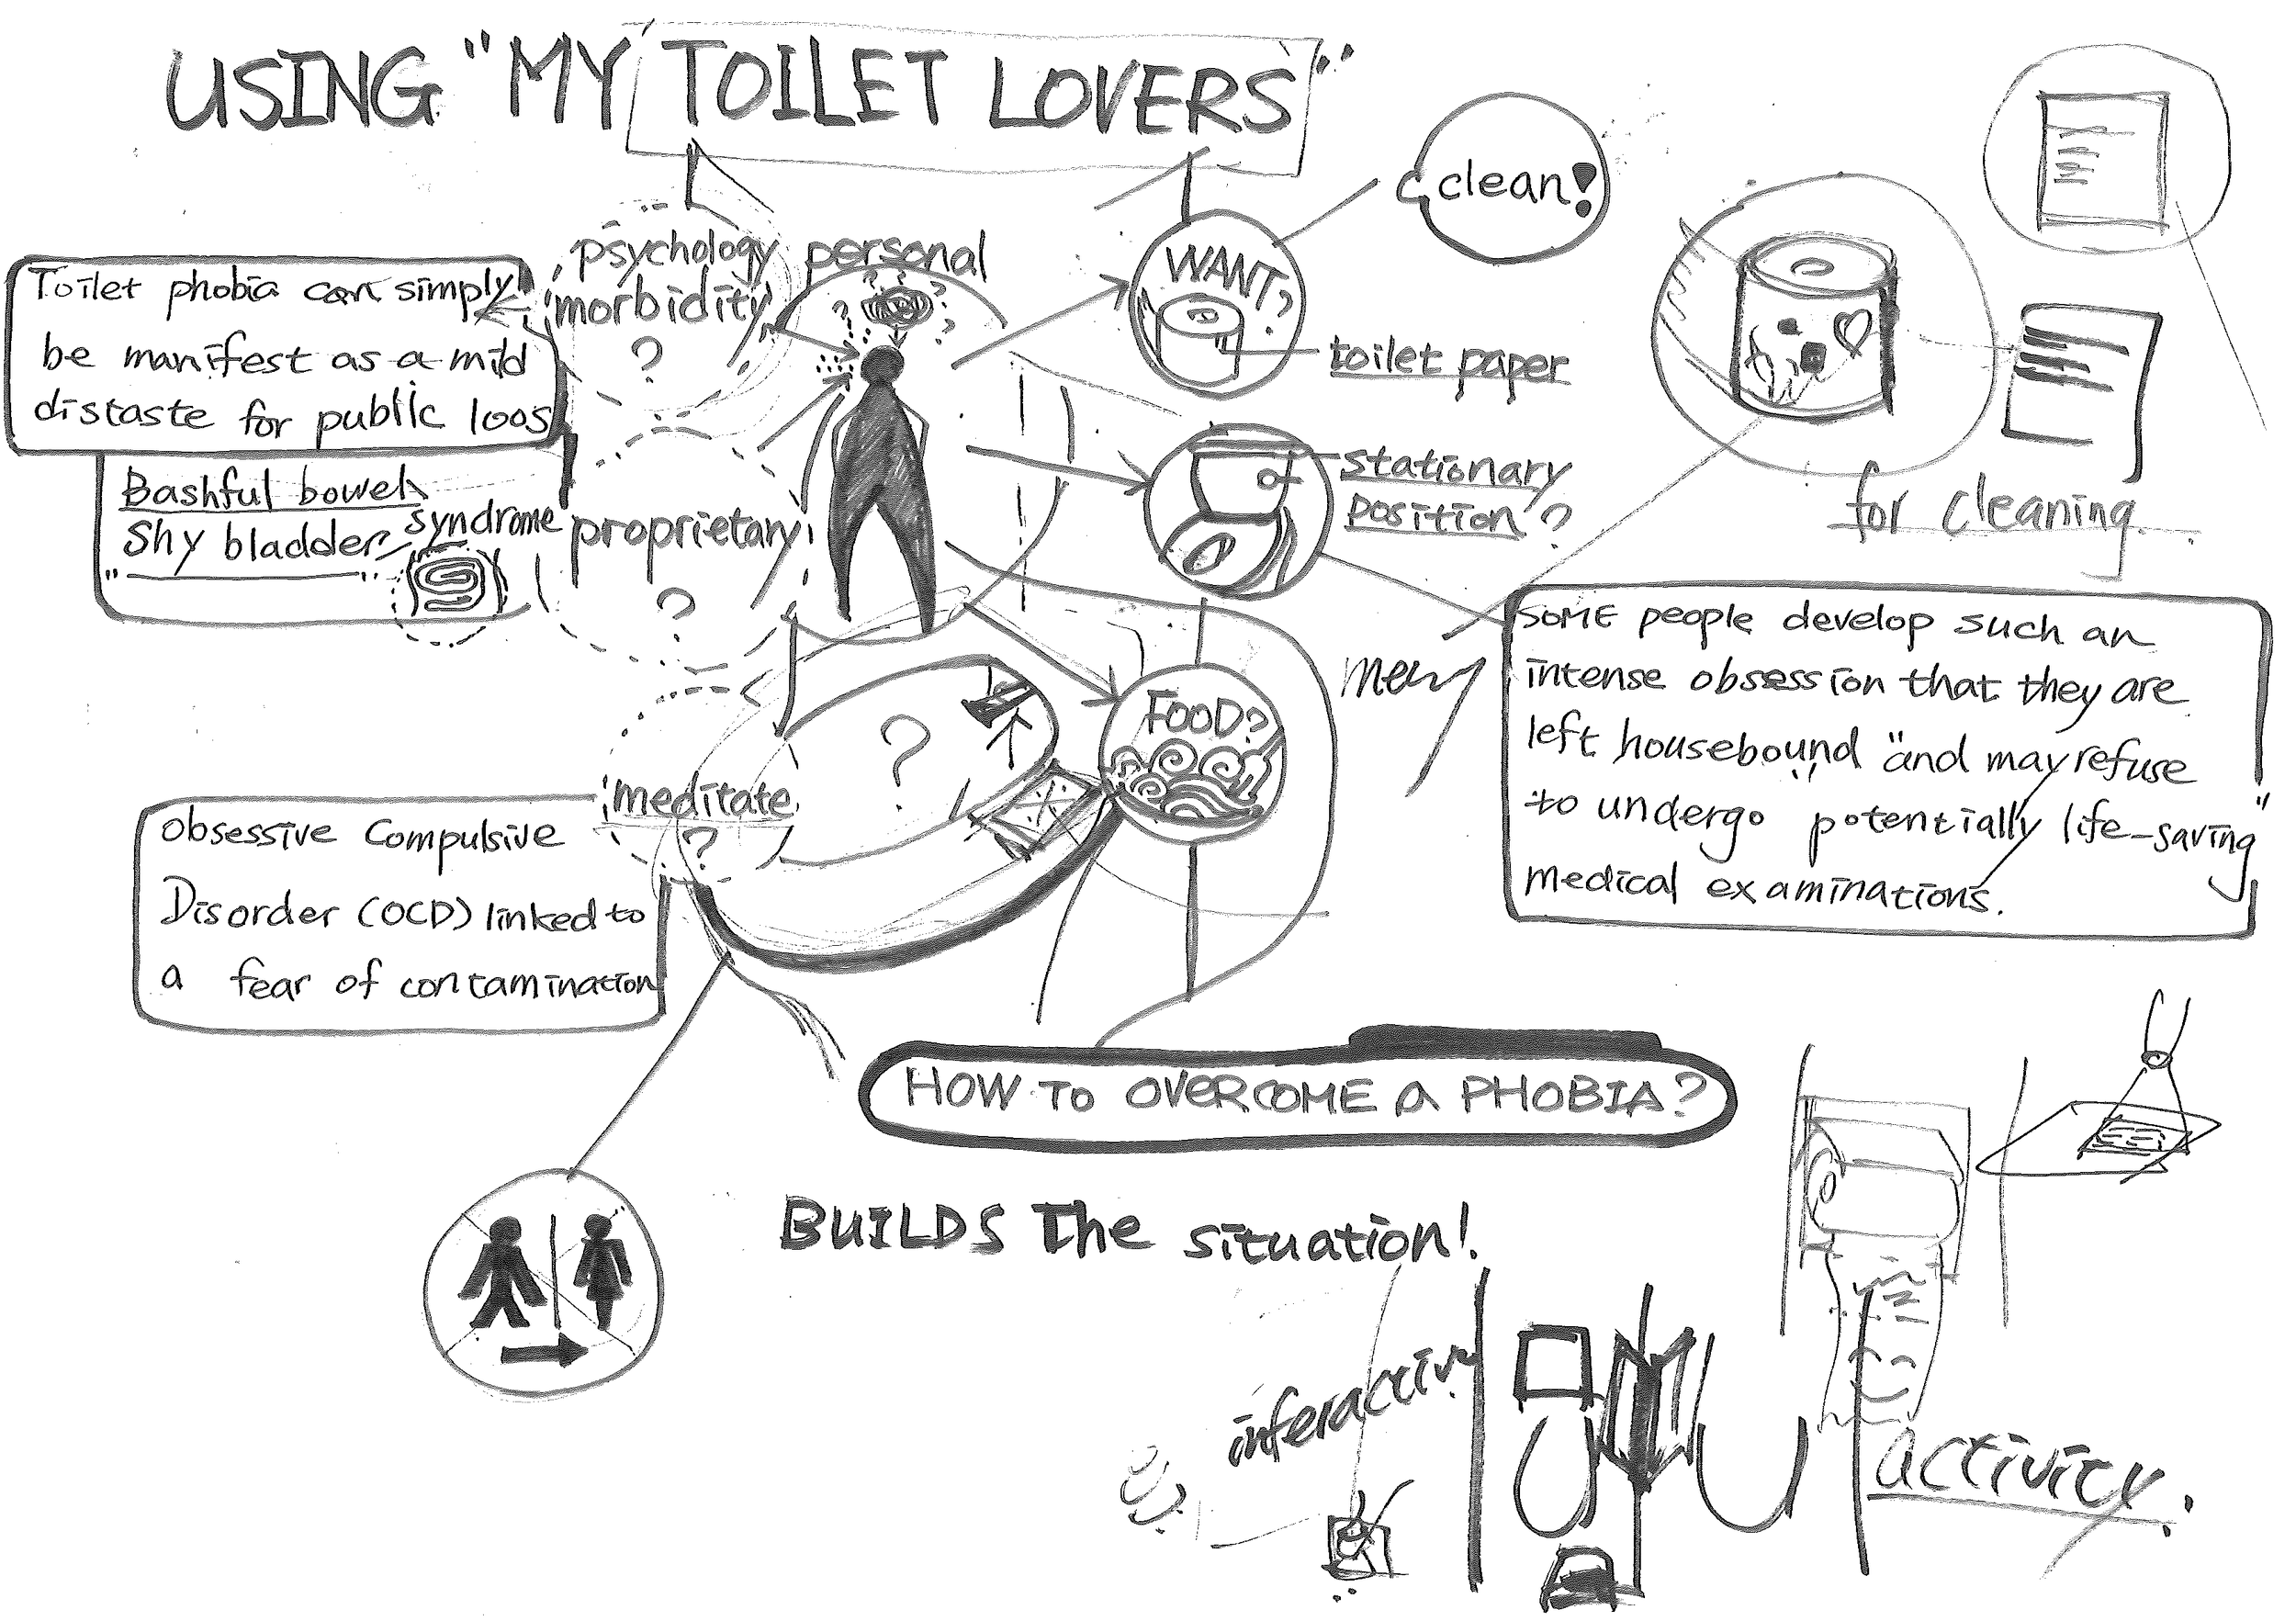 USING "MY TOILET LOVERS"
clean!
psychology
morbidity
?
personal
WANT?
toilet paper
Toilet phobia can simply
be manifest as a mild
distaste for public loos
Bashful bowel
Shy bladder syndrome
proprietary
?
stationary
position?
for cleaning
SOME people develop such an
intense obsession that they are
left housebound "and may refuse
to undergo "potentially life-saving"
medical examinations.
?
FOOD?
meditate
?
Obsessive Compulsive
Disorder (OCD) linked to
a fear of contamination
HOW TO OVERCOME A PHOBIA?
BUILDS The situation!
activity.